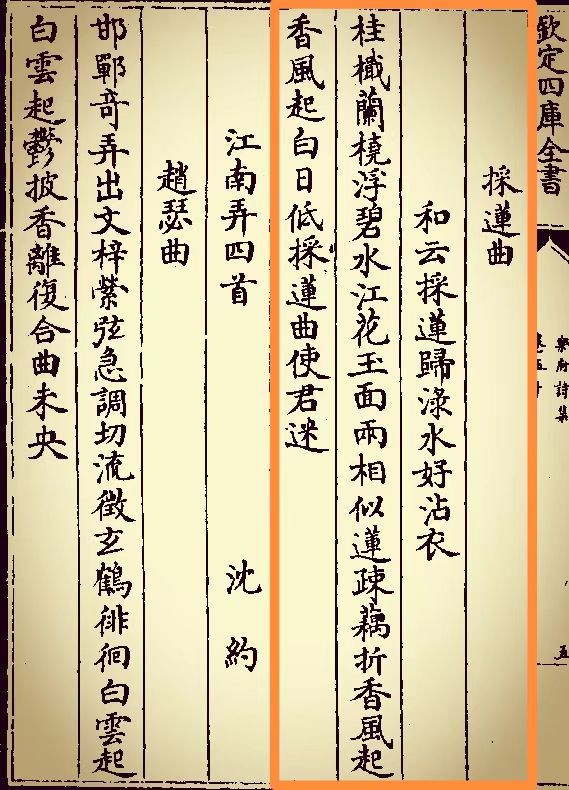 欽定四庫全書
樂府詩集
卷五十
五
採蓮曲
和云採蓮歸渌水好沾衣
桂檝蘭橈浮碧水江花玉面兩相似蓮疎藕折香風起
香風起白日低採蓮曲使君迷
江南弄四首 沈約
趙瑟曲
邯鄲竒弄出文梓縈弦急調切流徵玄鶴徘徊白雲起
白雲起鬱披香離復合曲未央